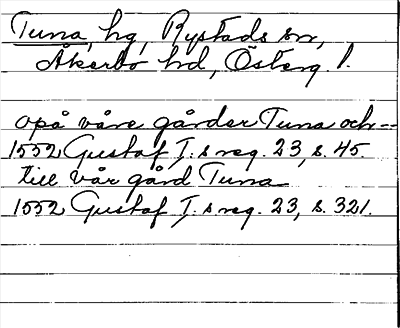 Tuna, hg, Rystads sn,
Åkerbo hd, Österg. l.
opå våre gårder Tuna och--
1552 Gustaf I:s reg. 23, s. 45.
till vår gård Tuna
1552 Gustaf I:s reg. 23, s. 321.